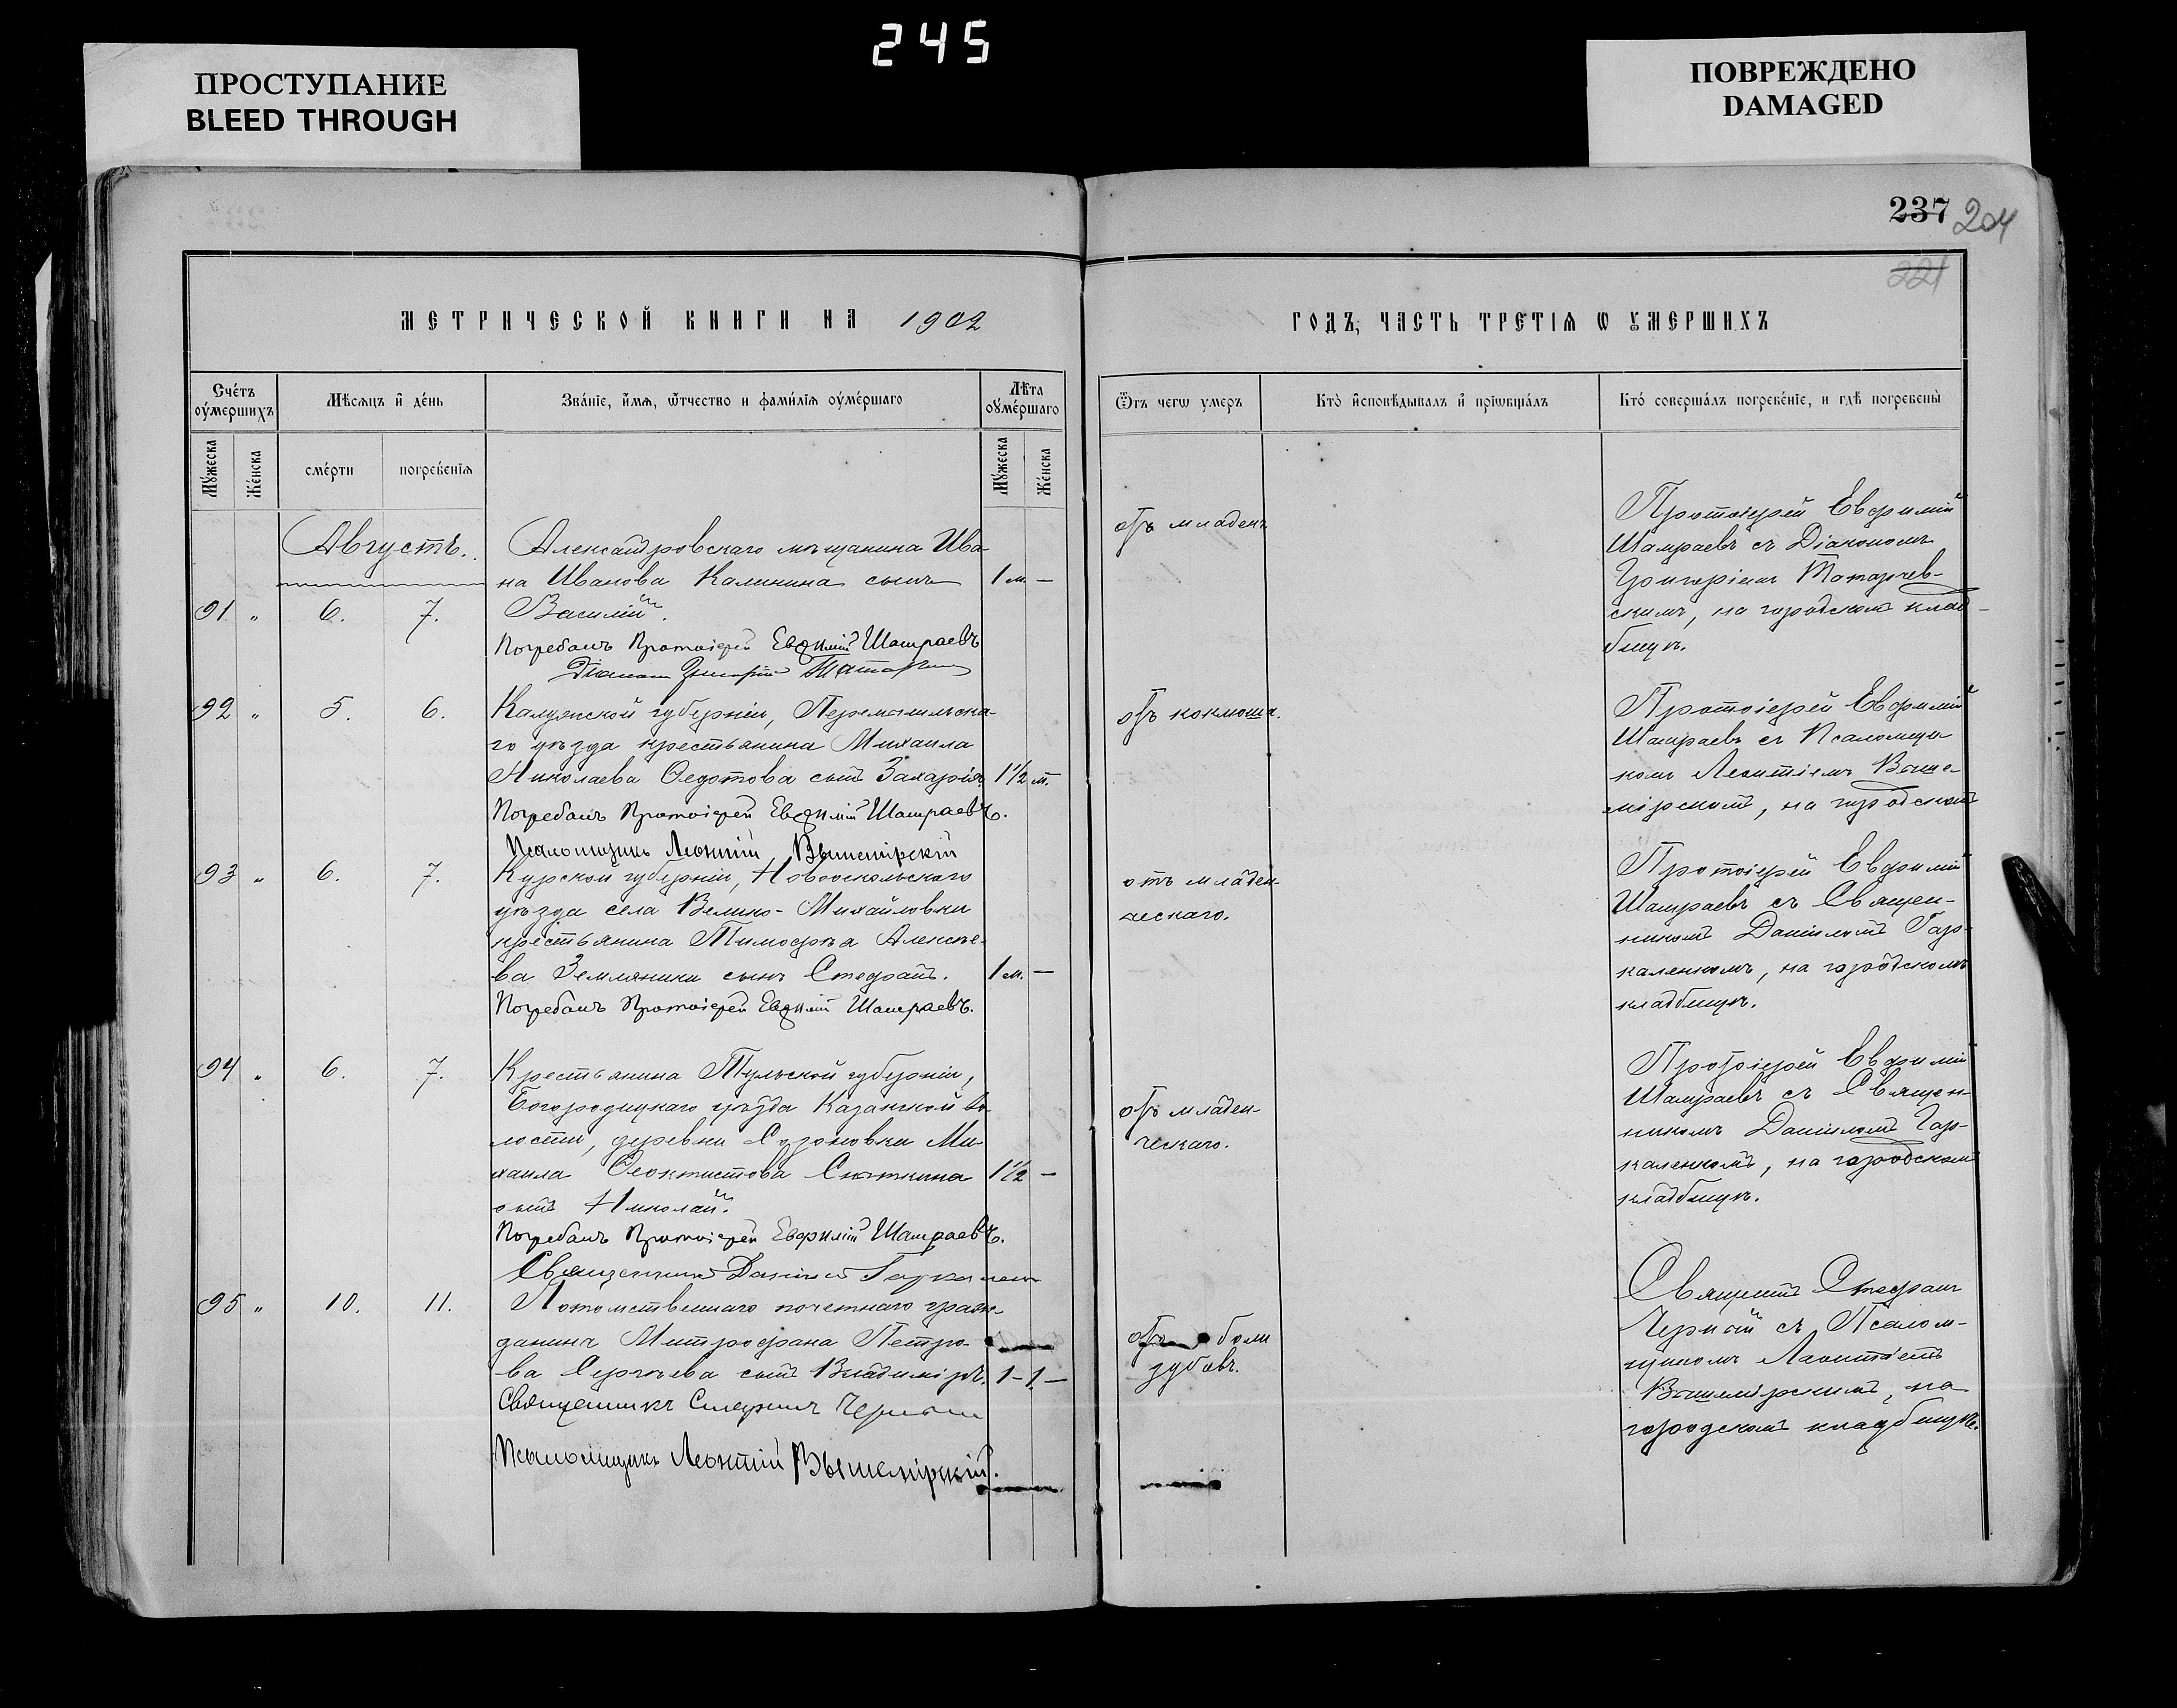 245
ПРОСТУПАНИЕ
BLEED THROUGH
ПОВРЕЖДЕНО
DAMAGED
237 204
221
МЕТРИЧЕСКОЙ КНИГИ НА 1902
ГОДЪ, ЧАСТЬ ТРЕТІѦ Ѡ ОУМЕРШИХЪ
Счетъ оумершихъ
Мѣсѧцъ и день
Званіе, имѧ, ѿчество и фамиліѧ оумершаго
Лѣта оумершаго
Ѿъ чегѡ умеръ
Кто исповѣдывалъ и пріѡбщалъ
Кто совершалъ погребеніе, и гдѣ погребены
Мужеска
Женска
смерти
погребеніѧ
Мужеска
Женска
Августъ.
Александровскаго мѣщанина Ива-
на Иванова Калинина сынъ 1 м. —
91 " 6. 7. Василій.
Погребалъ Протоіерей Евфимій Шамраевъ
Діаконъ Григорій
отъ младенч
Протоіерей Евфимій
Шамраевъ съ Діакономъ
Григоріемъ Татарчев-
скимъ, на городскомъ клад-
бищѣ.
92 " 5. 6. Калужской губерніи, Перемышльска-
го уѣзда крестьянина Михаила
Николаева Ѳедотова сынъ Захарія. 1 1/2 м.
Погребалъ Протоіерей Евфимій Шамраевъ.
Псаломщикъ Леонтій Вышемірскій
отъ коклюша.
Протоіерей Евфимій
Шамраевъ съ Псаломщи-
комъ Леонтіемъ Выше-
мірскимъ, на городскомъ
93 " 6. 7. Курской губерніи, Новооскольскаго
уѣзда села Велико-Михайловки
крестьянина Тимофѣя Алексѣе-
ва Земляники сынъ Стефанъ. 1 м. —
Погребалъ Протоіерей Евфимій Шамраевъ.
отъ младен-
ческаго.
Протоіерей Евфимій
Шамраевъ съ Священ-
никомъ Даніиломъ Гар-
каленкомъ, на городскомъ
кладбищѣ.
94 " 6. 7. Крестьянина Тульской губерніи,
Богородицкаго уѣзда Казанской во-
лости, деревни Ми-
хаила Ѳеоктистова 1 1/2 —
сынъ Николай.
Погребалъ Протоіерей Евфимій Шамраевъ.
Священникъ Даніилъ Гаркаленко
отъ младен-
ческаго.
Протоіерей Евфимій
Шамраевъ съ Священ-
никомъ Даніиломъ Гар-
каленкомъ, на городскомъ
кладбищѣ.
95 " 10. 11. Потомственнаго почетнаго граж-
данина Митрофана Петро-
ва Сергѣева сынъ Владиміръ. 1-1. —
Священникъ Стефанъ Черный
Псаломщикъ Леонтій Вышемірскій.
отъ боли
зубовъ.
Священ. Стефанъ
Черный съ Псалом-
щикомъ Леонтіемъ
Вышемірскимъ, на
городскомъ кладбищѣ.